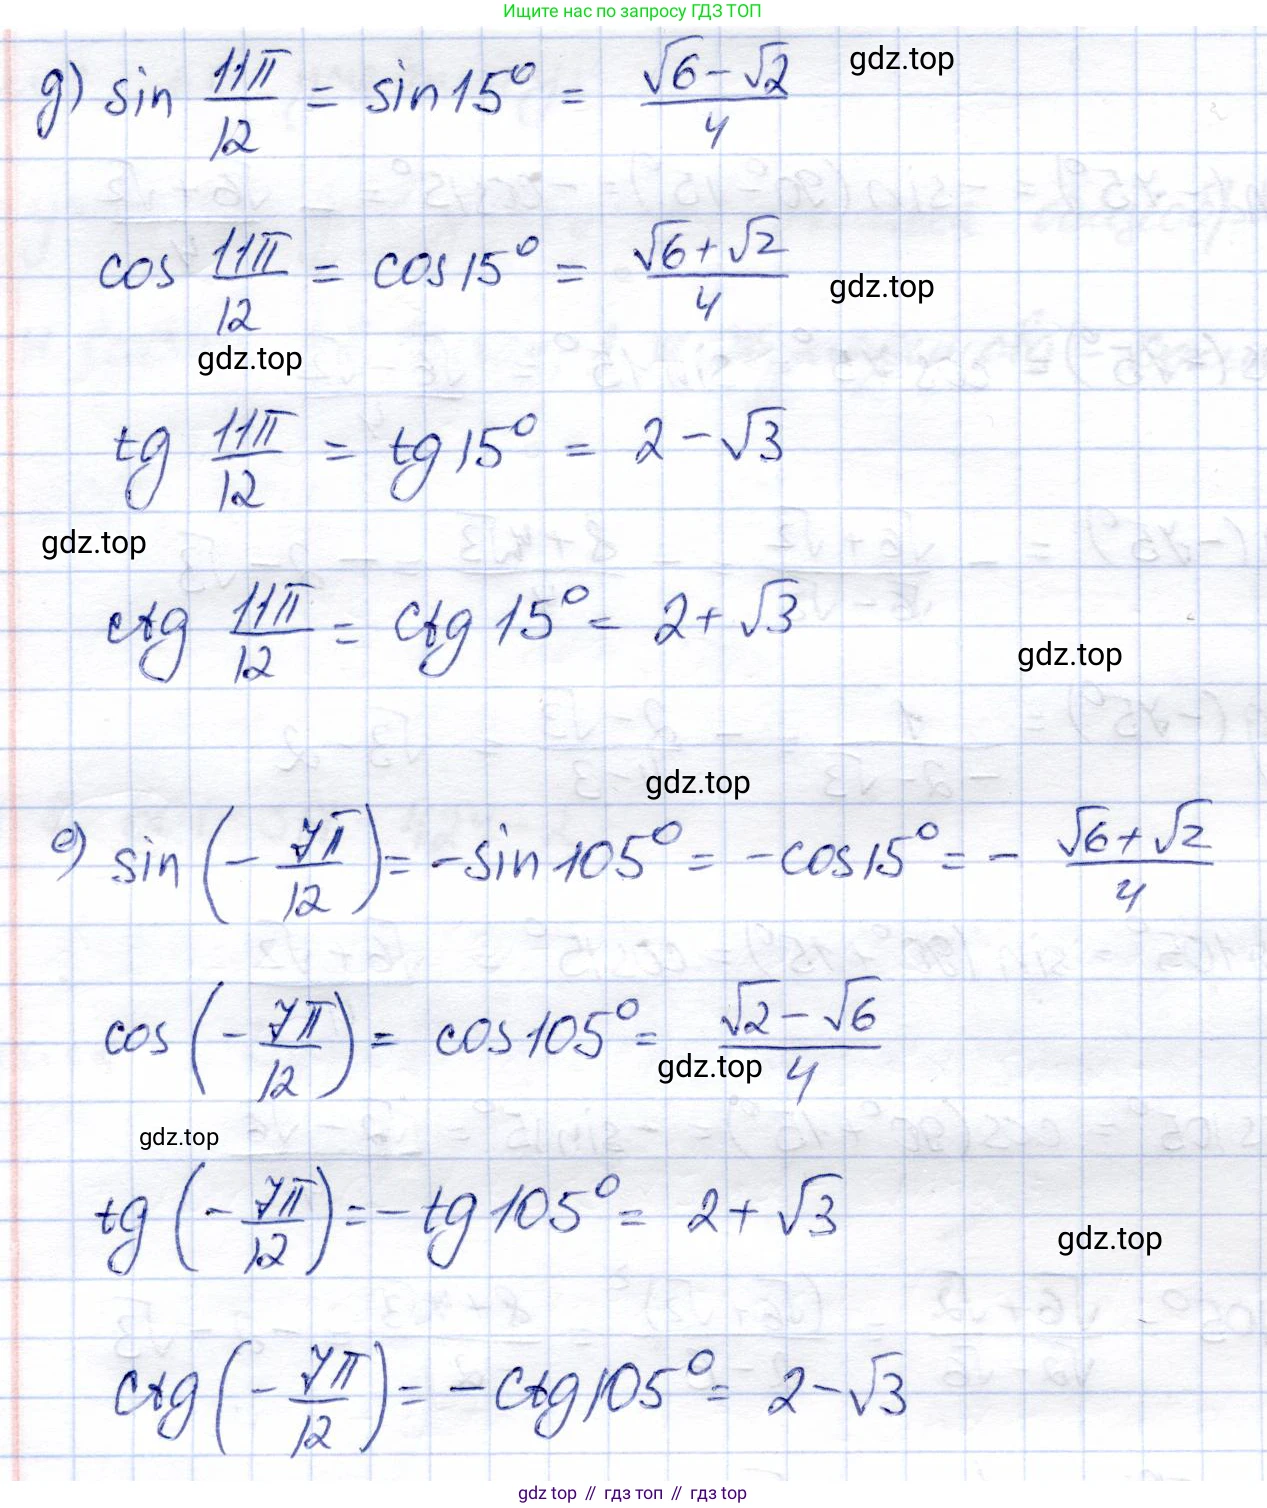 Ищите нас по запросу ГДЗ ТОП
д) sin 11π/12 = sin 15° = (√6 - √2)/4
gdz.top
cos 11π/12 = cos 15° = (√6 + √2)/4
gdz.top
gdz.top
tg 11π/12 = tg 15° = 2 - √3
gdz.top
ctg 11π/12 = ctg 15° = 2 + √3
gdz.top
gdz.top
е) sin (- 7π/12) = - sin 105° = - cos 15° = - (√6 + √2)/4
cos (- 7π/12) = cos 105° = (√2 - √6)/4
gdz.top
gdz.top
tg (- 7π/12) = - tg 105° = 2 + √3
gdz.top
ctg (- 7π/12) = - ctg 105° = 2 - √3
gdz top // гдз топ // gdz top